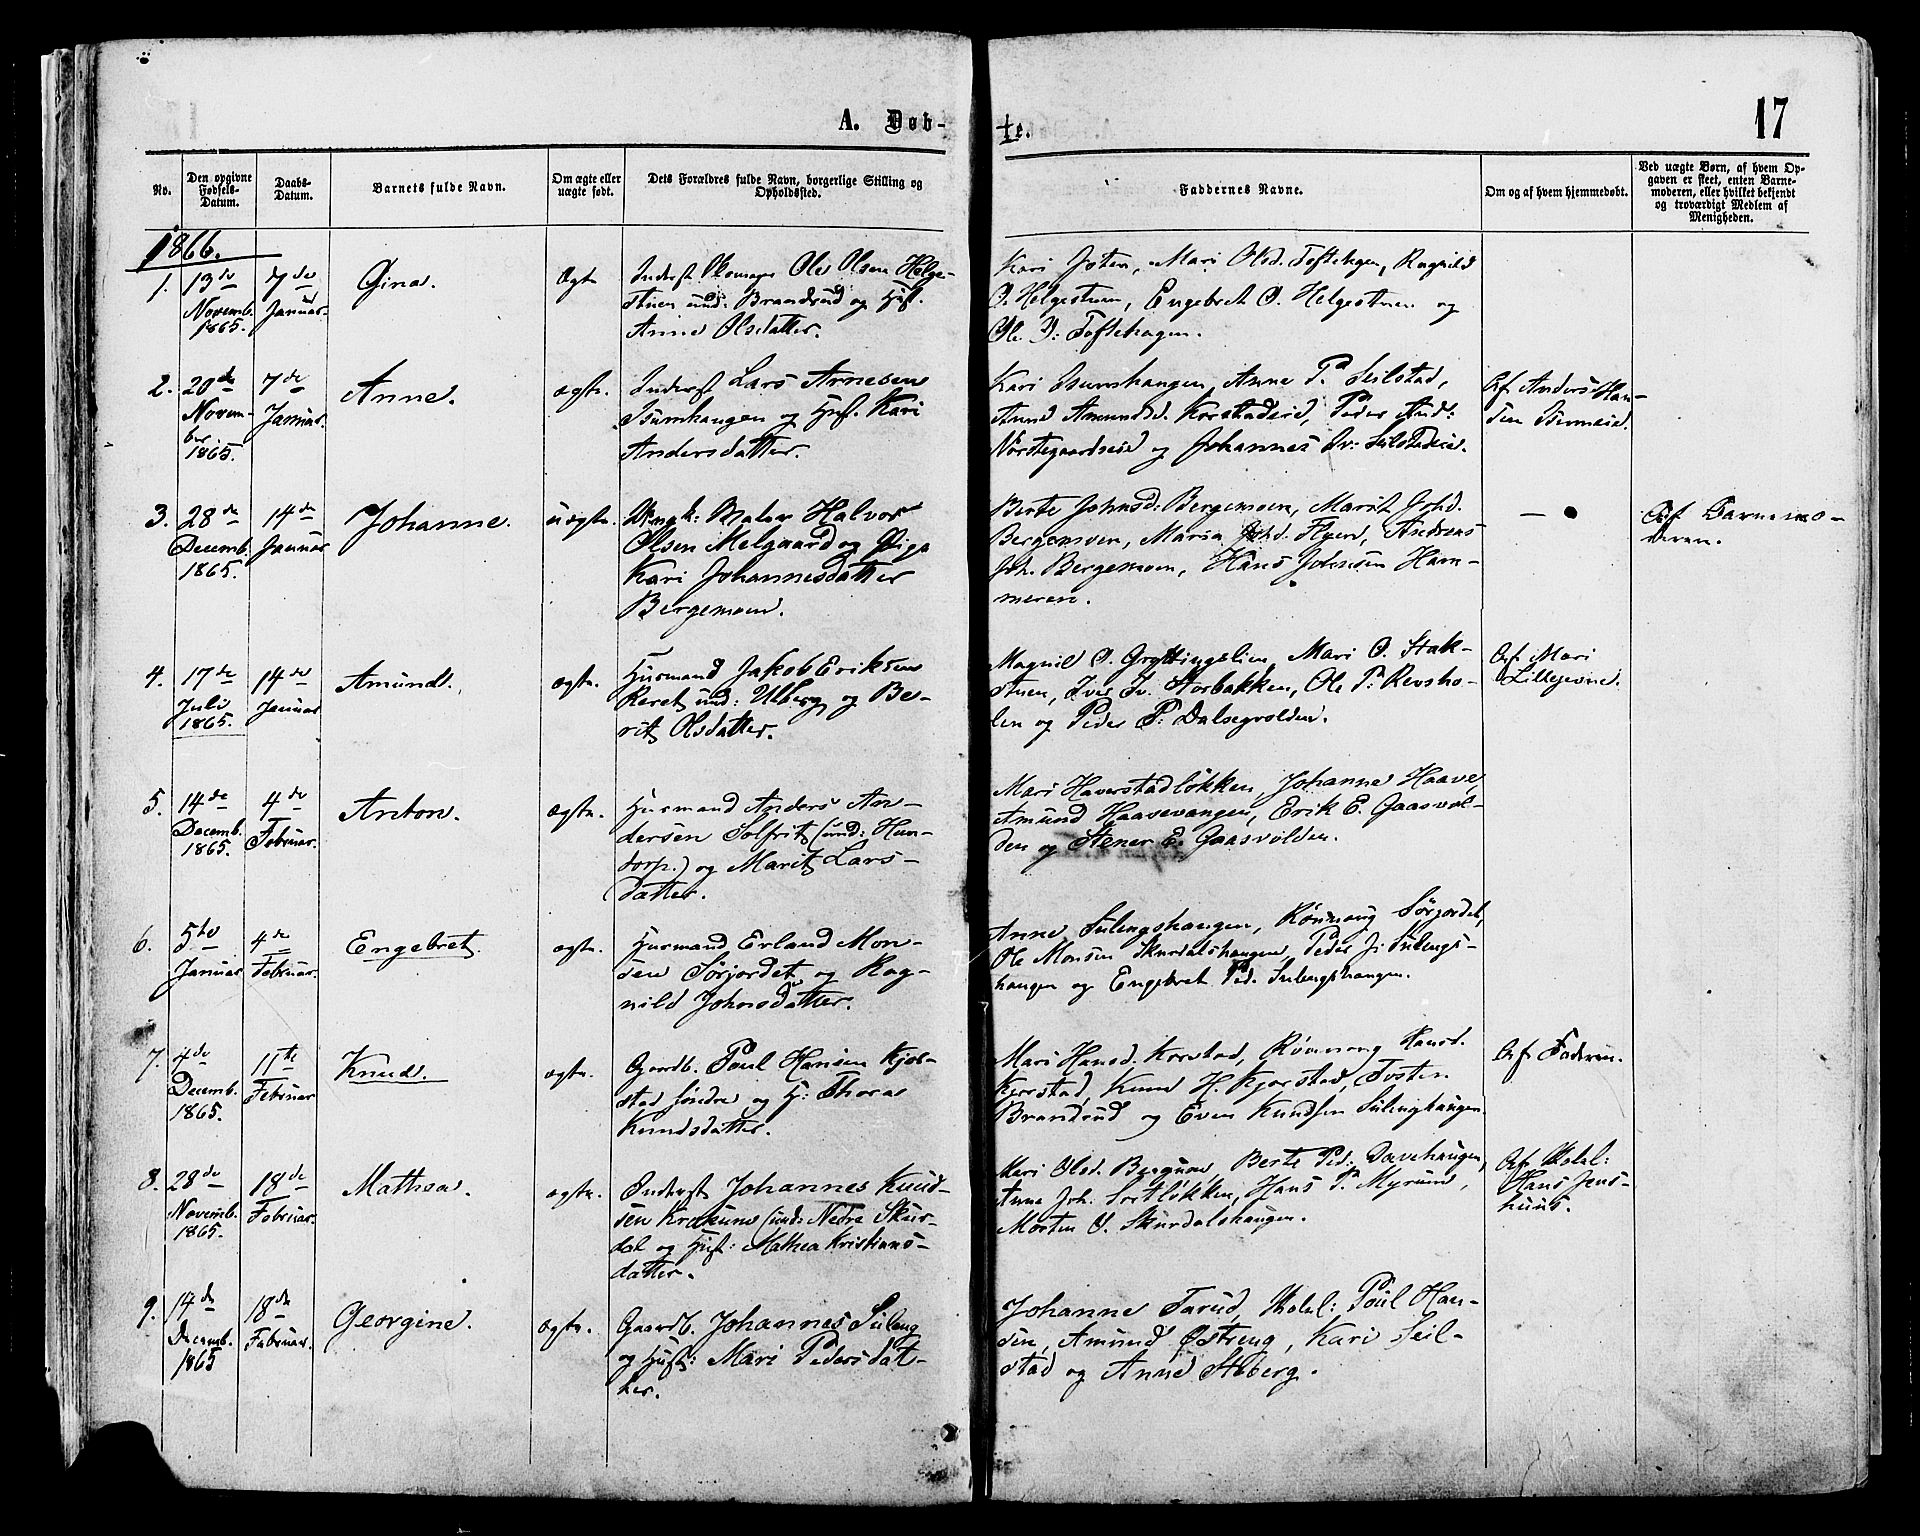 A. Døb-
te.
17
No.
Den opgivne
Fødsels-
Datum.
Daabs-
Datum.
Barnets fulde Navn.
Om ægte eller
uægte født.
Dets Forældres fulde Navn, borgerlige Stilling og
Opholdssted.
Faddernes Navne.
Om og af hvem hjemmedøbt.
Ved uægte Børn, af hvem Op-
gaven er skeet, enten Barne-
moderen, eller hvilket bekjendt
og troværdigt Medlem af
Menigheden.
1866.
1.
13de
Novemb.
1865.
7de
Januar.
Gina.
Ægte
Inderst Ole Olsen Helge-
stuen und: Brandrud og Hust.
Anne Olsdatter.
Kari Joten, Mari Olsd. Toftehagen, Ragnild
O. Helgestuen, Engebret O. Helgestuen og
Ole J: Toftehagen.
2.
20de
Novem-
ber
1865.
7de
Januar.
Anne.
ægte.
Inderst Lars Arnesen
Isumhaugen og Hust. Kari
Andersdatter.
Kari Isumhaugen, Anne P. Seilstad,
Anne Amundsd. Korstadeid, Peder And:
Norstegaardseie og Johannes Iv: Seilstadeie.
Af Anders Han-
sen Isumeie.
3.
28de
Decemb.
1865.
14de
Januar
Johanne.
uægte.
Ungk: Maler Halvor
Olsen Melgaard og Pige
Kari Johannesdatter
Bergemoen.
Berte Johnsd: Bergemoen, Marit Johd.
Bergemoen, Maria Johd. Flyen, Andreas
Joh. Bergemoen, Hans Johnsen Ham-
meren.
— •
Af Barnemo-
deren.
4.
17de
Juli
1865.
14de
Januar
Amund.
ægte.
Husmand Jakob Eriksen
Reret und: Ulberg og Be-
rit Olsdatter.
Magnil O. Gryttingslien, Mari O. Stak-
stuen, Iver Iv. Storbakken, Ole P: Revsho-
len og Peder P: Dalsegvolden.
Af Mari
Lillejevne.
5.
14de
Decemb.
1865.
4de
Februar.
Anton.
ægte.
Husmand Anders An-
dersen Solfrit (und: Hun-
dorp.) og Marit Lars-
datter.
Mari Haverstadløkken, Johanne Haave,
Amund Haasevangen, Erik E. Gaasvol-
den og Stener E. Gaasvolden.
6.
5te
Januar
4de
Februar.
Engebret.
ægte.
Husmand Erland Mon-
sen Sørjordet og Rag-
nild Johnsdatter.
Anne Sulengshaugen, Rønnoug Sørjordet,
Ole Monsen Skurdalshaugen, Peder J: Sulengs-
haugen og Engebret Ped. Sulengshaugen.
7.
4de
Decemb.
1865.
11te
Februar
Knud.
ægte.
Gardb. Poul Hansen Kjor-
stad søndre og H: Thora
Knudsdatter.
Mari Hansd. Korstad, Rønnoug Hansd.
Kjorstad, Knud H. Kjorstad, Tosten
Brandrud og Even Knudsen Sulenghaugen.
Af Faderen.
8.
28de
Novemb.
1865.
18de
Februar.
Mathea.
ægte.
Inderst Johannes Knud-
sen Krokun (und: Nedre Skur-
dal og Hust: Mathea Kristians-
datter.
Mari Olsd. Berguov, Berte Ped: Davehaugen,
Anne Joh. Sortløkken, Hans P. Myrum,
Morten O. Skurdalshaugen.
Af Skolel:
Hans Jens-
huus.
9.
14de
Decemb.
1865
18de
Februar.
Georgine.
ægte.
Gaardb. Johannes Suleng
og Hust: Mari Pedersdat-
ter.
Johanne Tarud, Skolel: Poul Han-
sen, Amund Østreng, Kari Seil-
stad og Anne Stoberg.